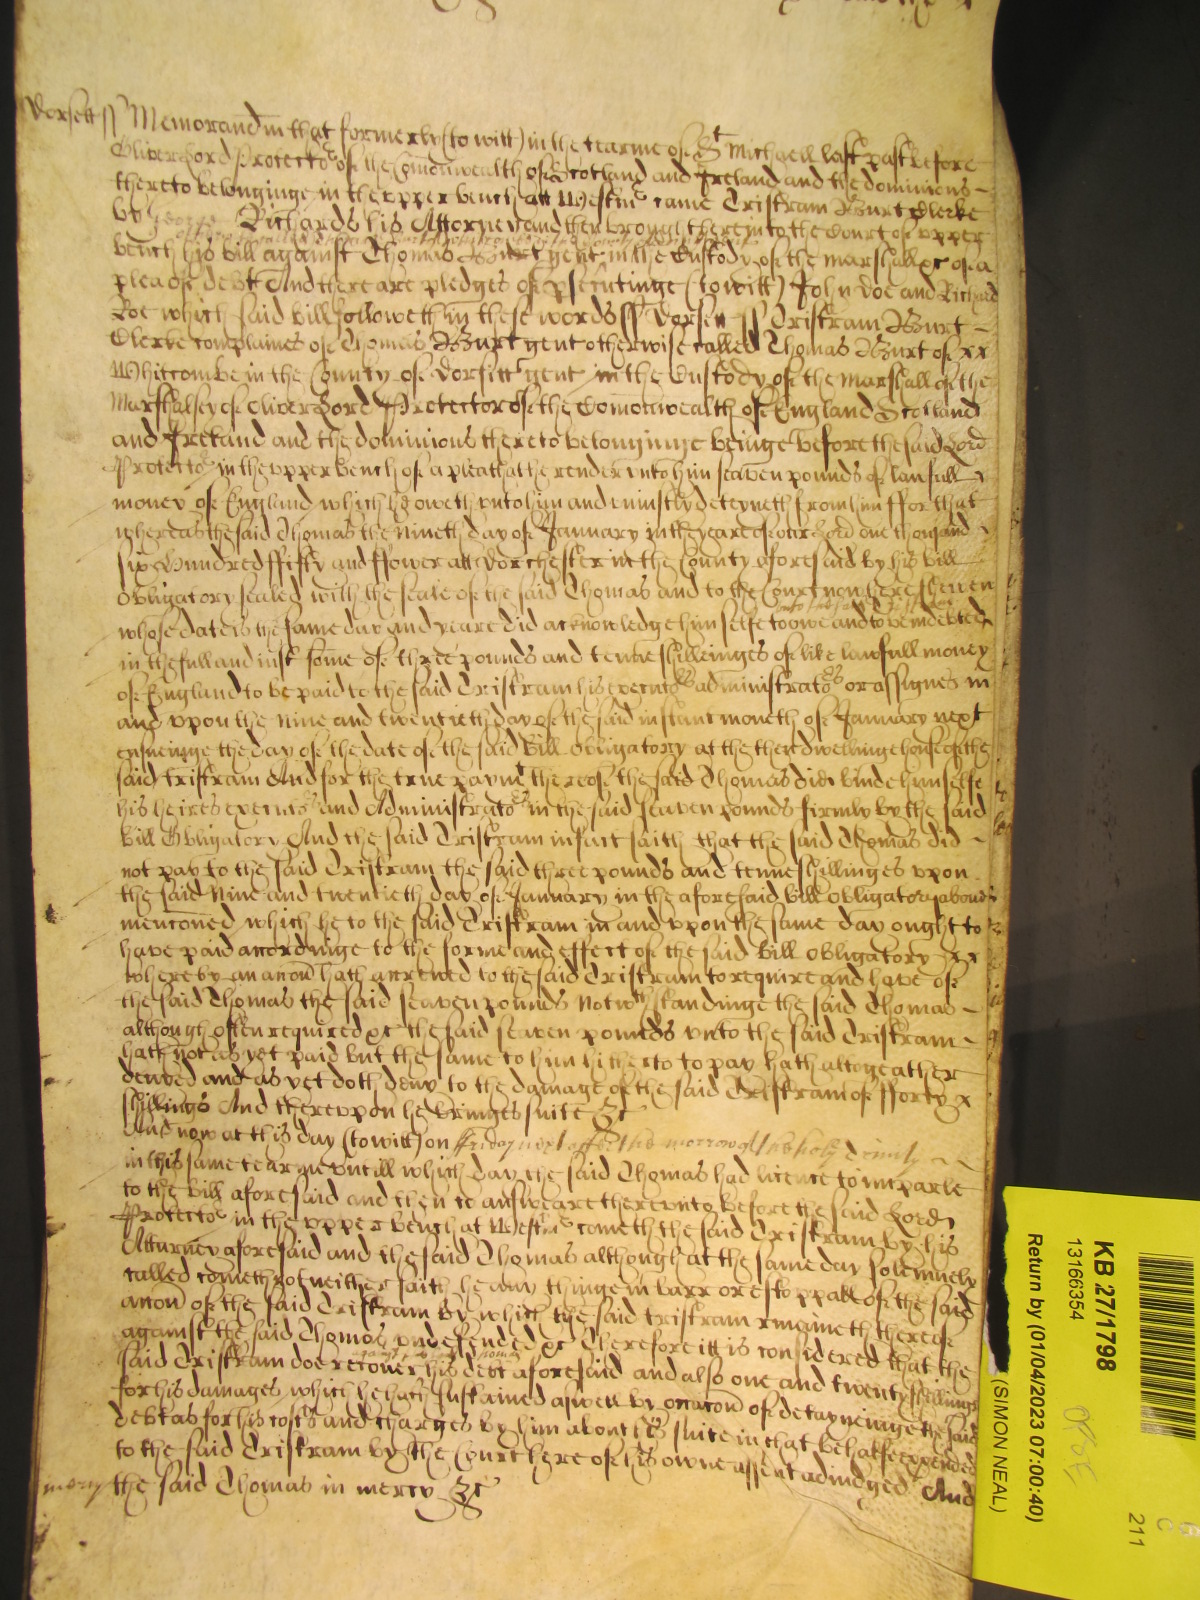 Dorsett ss Memorand'm that formerly (to witt) in the tearme of St Michaell last past before
Oliver Lord Protector of the Comonwealth of Scotland and Ireland and the dominions
thereto belonginge in the upper bench att Westm' came Tristram Burt Clerke
by George Richards his Attorney and then brought here into the Court of upper
bench his bill against Thomas Burt gent in the Custody of the marshall &c of a
plea of debt And there are pledges of psecutinge (to witt) John Doe and Richard
Roe which said bill followeth in these words ss Dorsett ss Tristram Burt
Clerke complaines of Thomas Burt gent otherwise called Thomas Burt of xx
Whitcombe in the County of Dorsett gent in the Custody of the Marshall of the
Marshalsey of Oliver Lord Protector of the Comonwealth of England Scotland
and Ireland and the dominions thereto belonginge beinge before the said Lord
Protector in the upper bench of a plea that he render unto him seaven pounds of lawfull
money of England which he oweth unto him and uniustly deteyneth from him ffor that
whereas the said Thomas the Nineth day of January in the yeare of our Lord one thousand
six hundred ffifty and ffower att Dorchester in the County aforesaid by his bill
Obligatory sealed with the seale of the said Thomas and to the Court now here shewen
whose date is the same day and yeare did acknowledge himselfe to owe and to be indebted
in the full and iust some of three pounds and tenne shilleinges of like lawfull money
of England to be paid to the said Tristram his executors administrators or assignes in
and upon the Nine and twentieth day of the said instant moneth of January next
ensueinge the day of the date of the said Bill Obligatory at the then dwellinge house of the
said Tristram And for the true paymt thereof the said Thomas did binde himselfe
his heires executors and Administrators in the said seaven pounds firmly by the said
bill Obligatory And the said Tristram in fact saith that the said Thomas did
not pay to the said Tristram the said three pounds and tenne shillinges upon
the said Nine and twentieth day of January in the aforesaid bill obligatory above
mencioned which he to the said Tristram in and upon the same day ought to
have paid accordinge to the forme and effect of the said Bill Obligatory xx
whereby an accon hath accrewed to the said Tristram to require and have of
the said Thomas the said seaven pounds Notwthstandinge the said Thomas
although often required &c the said seaven pounds unto the said Tristram
hath not as yet paid but the same to him hitherto to pay hath altogeather
denyed and as yet doth deny to the damage of the said Tristram of fforty x
shillings And thereuppon he bringes suite &c
And now at this day (to witt) on ffriday next after the morrow of the holy Trinity
in this same tearme untill which day the said Thomas had licence to imparle
to the bill aforesaid and then to answeare thereunto before the said Lord
Protector in the upper bench at Westm' cometh the said Tristram by his
Atturney aforesaid and the said Thomas although at the same day solemnely
called cometh not neither saith he any thinge in barr or estoppall of the said
accon of the said Tristram by which the said Tristram remaineth thereof
against the said Thomas undefended &c Therefore itt is considered that the
said Tristram doe recover against the said Thomas his debt aforesaid and also one and twenty shillings
for his damages which he hath sustained aswell by occacon of detayneinge the said
debt as for his costs and charges by him about his suite in that behalfe expended
to the said Tristram by the Court here of his owne assent adiudged And
mercy the said Thomas in mercy &c
KB 27/1798
13166354
Return by (01/04/2023 07:00:40)
(SIMON NEAL)
211